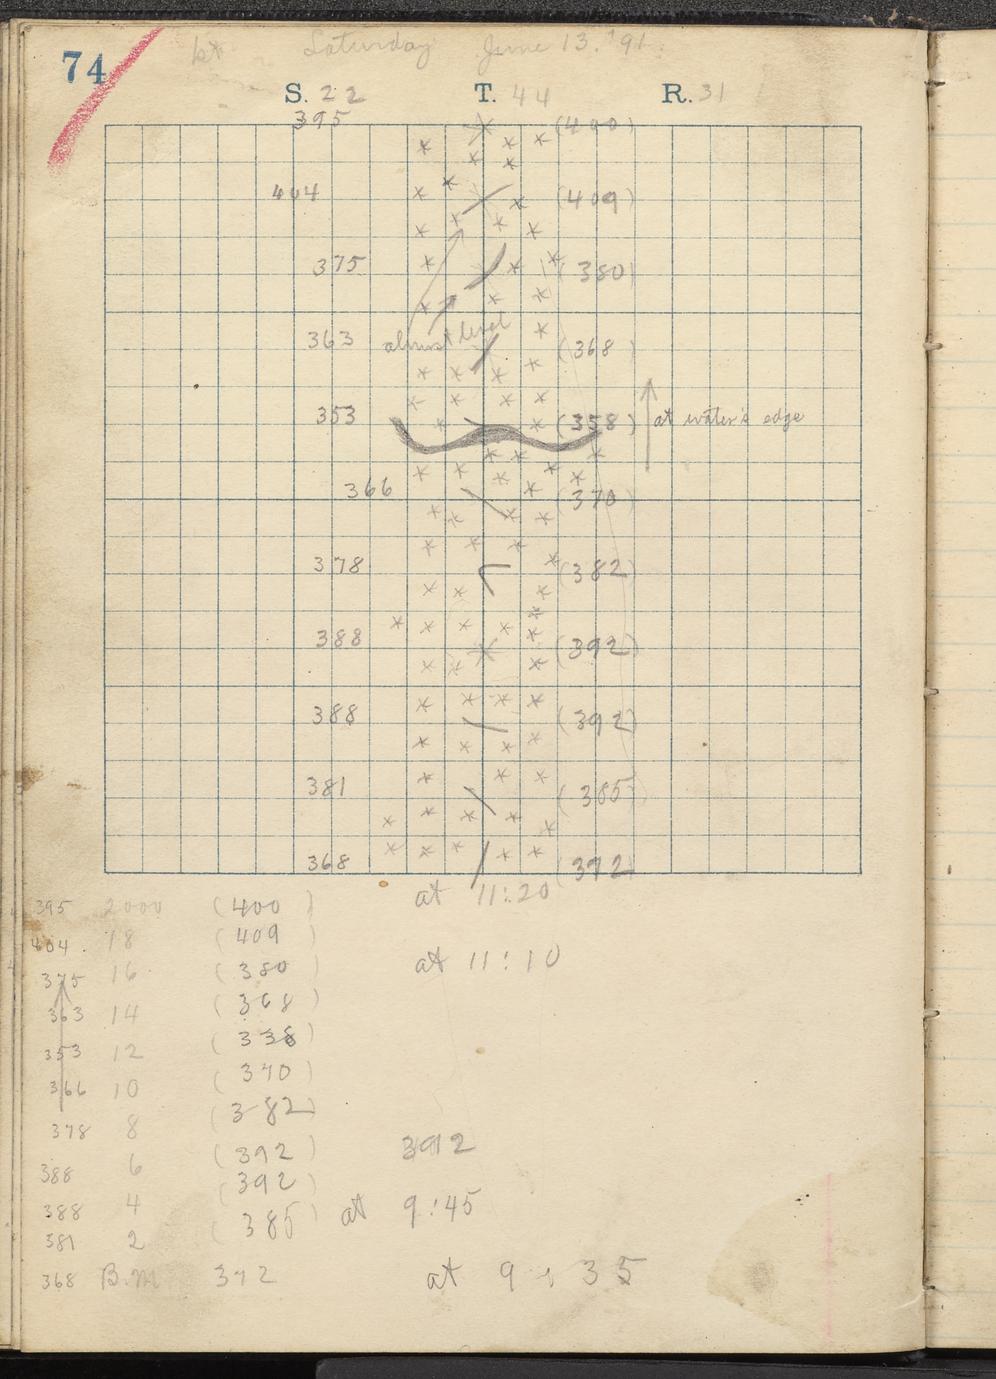 74 Saturday June 13. '91
S. 22 T. 44 R. 31
395 (400)
404 (409)
375 (380)
almost level
363 (368)
353 (358) at water's edge
366 (370)
378 (382)
388 (392)
388 (392)
381 (385)
368 (372)
at 11:20
395 2000 (400)
404. 18 (409)
at 11:10
375 16 (380)
363 14 (368)
353 12 (338)
366 10 (370)
378 8 (382)
388 6 (392) 392
388 4 (392)
381 2 (385) at 9:45
368 B.M 372 at 9:35